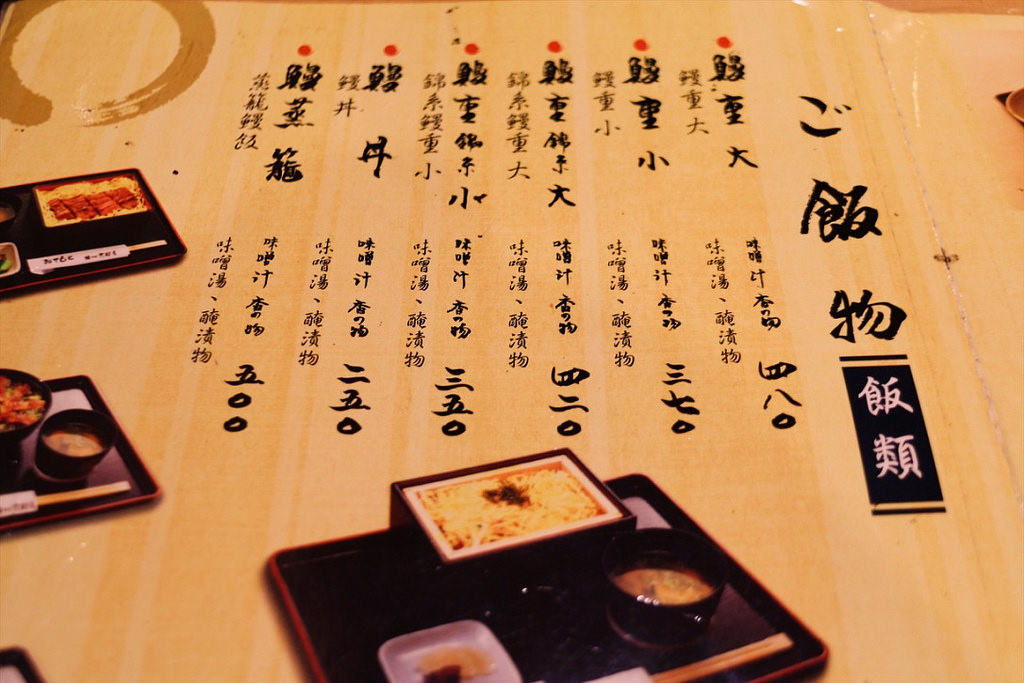 ご飯物
飯類
鰻重大
鰻重 大
味噌汁 香の物
味噌湯、醃漬物
四八〇
鰻重小
鰻重 小
味噌汁 香の物
味噌湯、醃漬物
三七〇
鰻重錦糸大
錦糸鰻重 大
味噌汁 香の物
味噌湯、醃漬物
四二〇
鰻重錦糸小
錦糸鰻重 小
味噌汁 香の物
味噌湯、醃漬物
三五〇
鰻丼
鰻丼
味噌汁 香の物
味噌湯、醃漬物
二五〇
鰻蒸籠
蒸籠鰻飯
味噌汁 香の物
味噌湯、醃漬物
五〇〇
おてもと